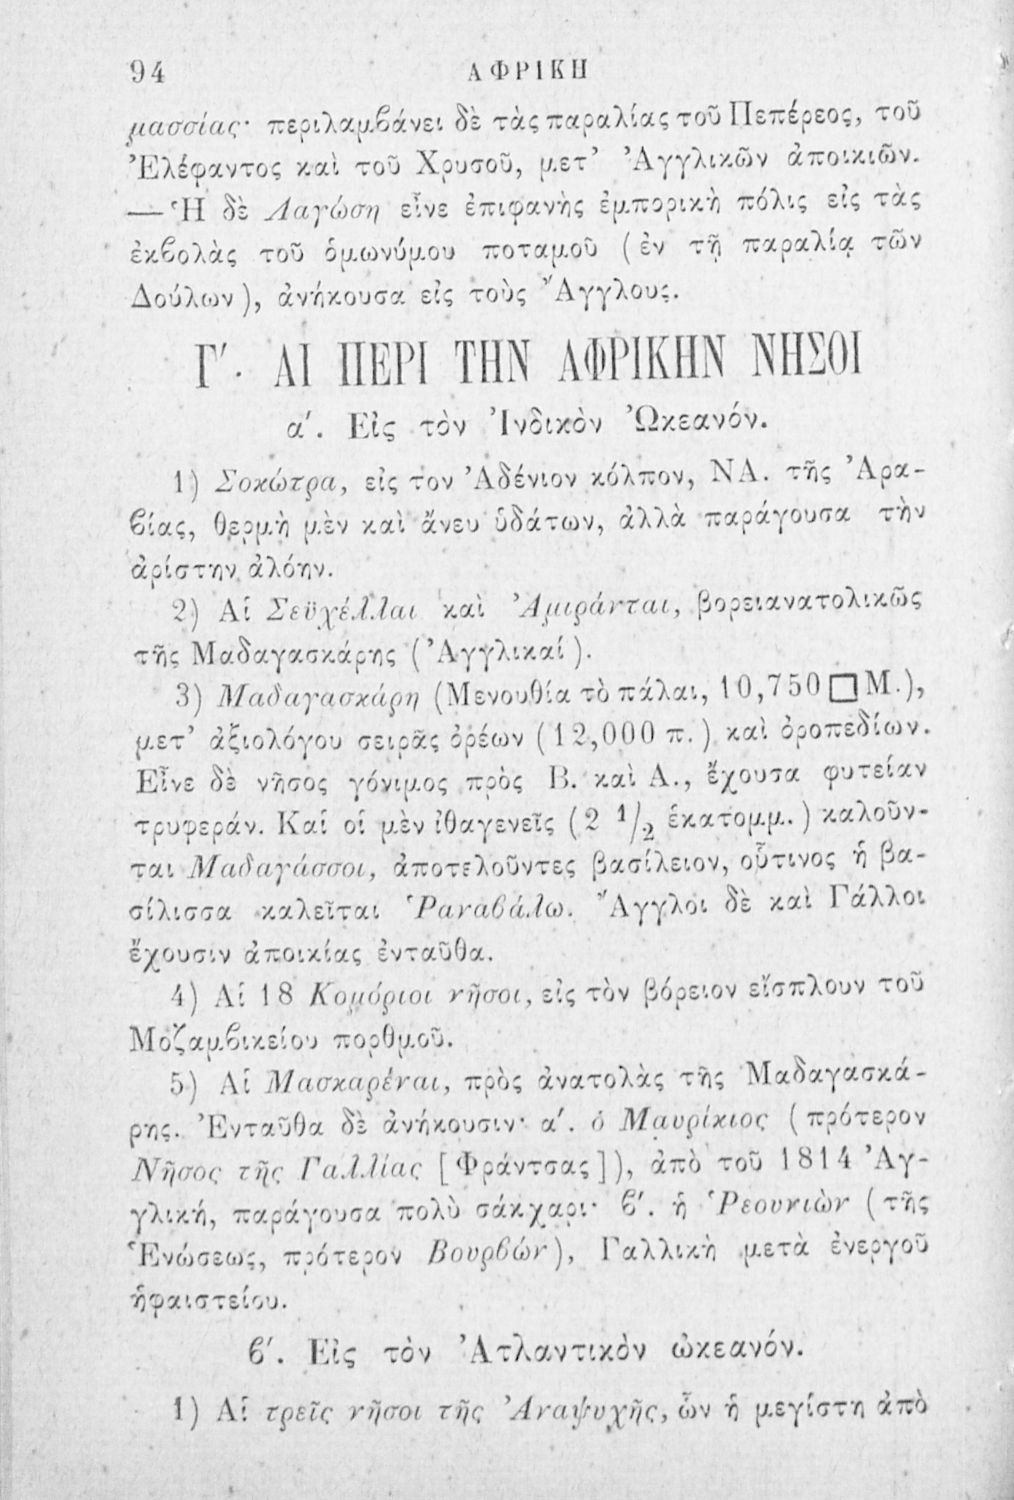 94
ΑΦΡΙΚΗ
μασσίας· περιλαμβάνει δὲ τὰς παραλίας τοῦ Πεπέρεος, τοῦ
Ἐλέφαντος καὶ τοῦ Χρυσοῦ, μετ’ Ἀγγλικῶν ἀποικιῶν.
— Ἡ δὲ Λαγώση εἶνε ἐπιφανὴς ἐμπορικὴ πόλις εἰς τὰς
ἐκϐολὰς τοῦ ὁμωνύμου ποταμοῦ (ἐν τῇ παραλίᾳ τῶν
Δούλων), ἀνήκουσα εἰς τοὺς Ἄγγλους.
Γ′. ΑΙ ΠΕΡΙ ΤΗΝ ΑΦΡΙΚΗΝ ΝΗΣΟΙ
α′. Εἰς τὸν Ἰνδικὸν Ὠκεανόν.
1) Σοκώτρα, εἰς τον Ἀδένιον κόλπον, ΝΑ. τῆς Ἀρα-
ϐίας, θερμὴ μὲν καὶ ἄνευ ὑδάτων, ἀλλὰ παράγουσα τὴν
ἀρίστην ἀλόην.
2) Αἱ Σεϋχέλλαι καὶ Ἀμιράνται, βορειανατολικῶς
τῆς Μαδαγασκάρης (Ἀγγλικαί).
3) Μαδαγασκάρη (Μενουθία τὸ πάλαι, 10,750 □ Μ.),
μετ’ ἀξιολόγου σειρᾶς ὀρέων (12,000 π.) καὶ ὀροπεδίων.
Εἶνε δὲ νῆσος γόνιμος πρὸς Β. καὶ Α., ἔχουσα φυτείαν
τρυφεράν. Καί οἱ μὲν ἰθαγενεῖς (2 1/2 ἑκατομμ.) καλοῦν-
ται Μαδαγάσσοι, ἀποτελοῦντες βασίλειον, οὗτινος ἡ βα-
σίλισσα καλεῖται Ῥαναϐάλω. Ἄγγλοι δὲ καὶ Γάλλοι
ἔχουσιν ἀποικίας ἐνταῦθα.
4) Αἱ 18 Κομόριοι νῆσοι, εἰς τὸν βόρειον εἴσπλουν τοῦ
Μοζαμϐικείου πορθμοῦ.
5) Αἱ Μασκαρέναι, πρὸς ἀνατολὰς τῆς Μαδαγασκά-
ρης. Ἐνταῦθα δὲ ἀνήκουσιν· α′. ὁ Μαυρίκιος (πρότερον
Νῆσος τῆς Γαλλίας [Φράντσας]), ἀπὸ τοῦ 1814 Ἀγ-
γλική, παράγουσα πολὺ σάκχαρι· ϐ′. ἡ Ῥεουνιὼν (τῆς
Ἑνώσεως, πρότερον Βουρϐών), Γαλλικὴ μετὰ ἐνεργοῦ
ἡφαιστείου.
ϐ′. Εἰς τὸν Ἀτλαντικὸν ὠκεανόν.
1) Αἱ τρεῖς νῆσοι τῆς Ἀναψυχῆς, ὧν ἡ μεγίστη ἀπὸ